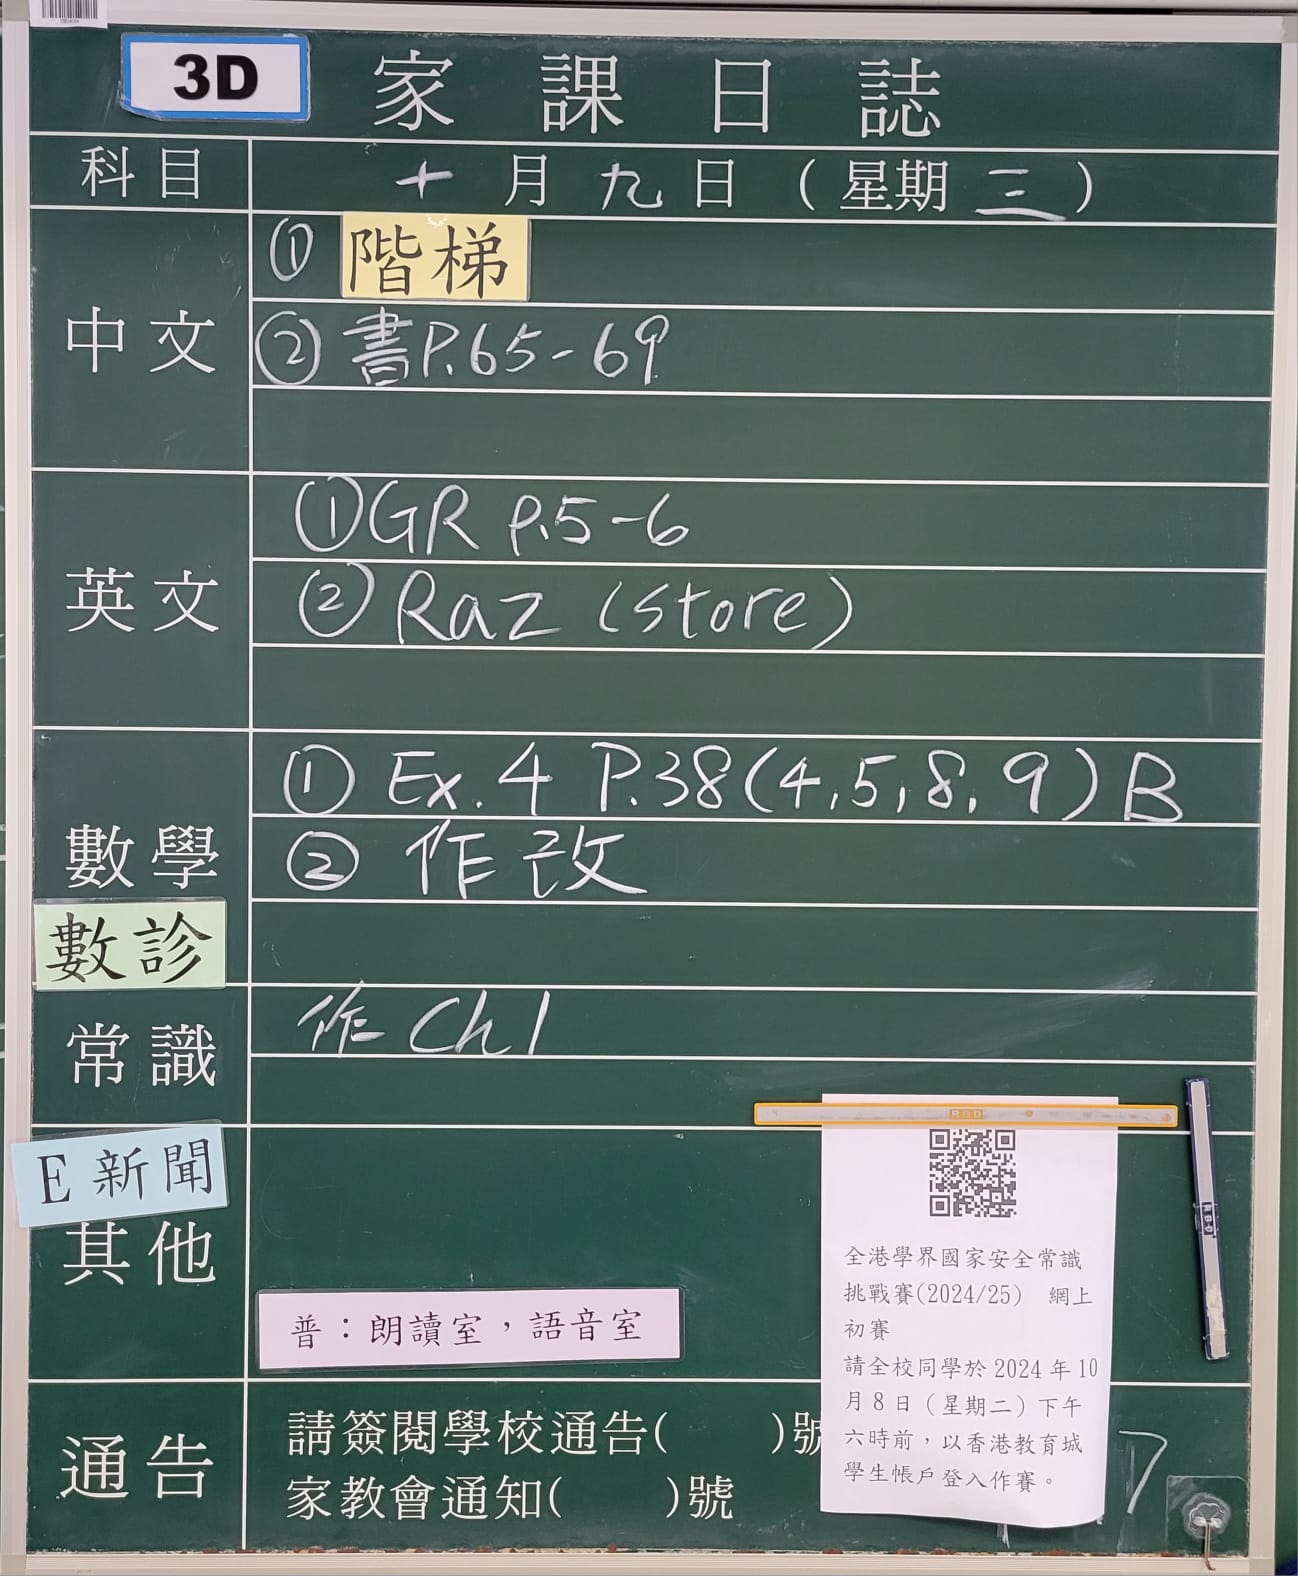 3D 家課日誌
科目 十月九日(星期三)
中文
① 階梯
② 書P.65-69
英文
① GR P.5-6
② Raz (store)
數學
① Ex. 4 P.38(4,5,8,9) B
② 作改
數診
常識
作 Ch1
E 新聞
其他
普：朗讀室，語音室
通告
請簽閱學校通告( )號
家教會通知( )號
全港學界國家安全常識
挑戰賽(2024/25) 網上
初賽
請全校同學於 2024 年 10
月 8 日（星期二）下午
六時前，以香港教育城
學生帳戶登入作賽。
7
RBD
RBD